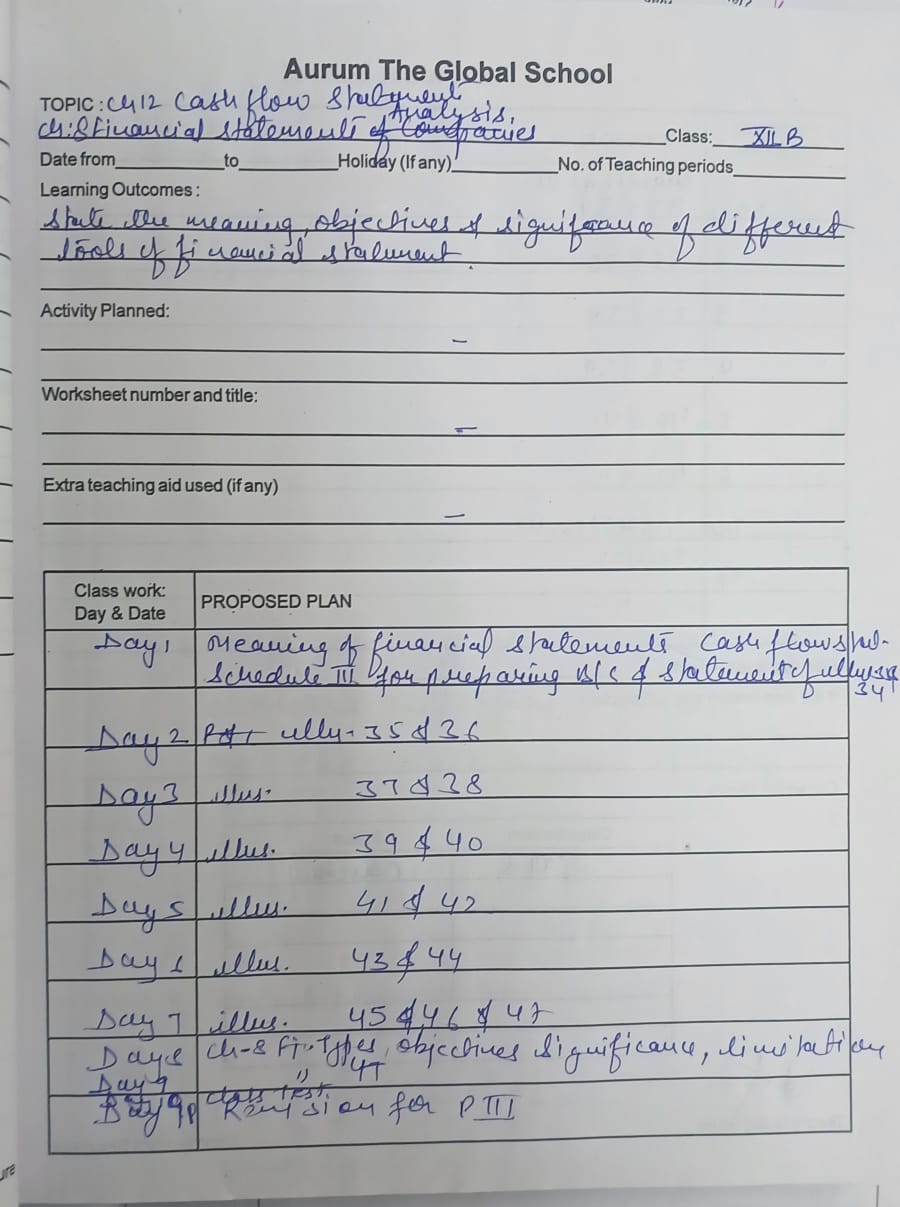 Aurum The Global School
TOPIC : Ch 12 Cash flow Statement
Analysis,
Ch: 8 Financial statements of Companies Class: XII B
Date from to Holiday (If any) No. of Teaching periods
Learning Outcomes :
State the meaning, objectives & significance of different
tools of financial statement
Activity Planned:
–
Worksheet number and title:
–
Extra teaching aid used (if any)
–
Class work:
Day & Date
PROPOSED PLAN
Day 1 Meaning of financial statements Cash flow
Schedule III for preparing B/S & statement of
34
Day 2 illy- 35 & 36
Day 3 illus. 37 & 38
Day 4 illus. 39 & 40
Day 5 illus. 41 & 42
Day 6 illus. 43 & 44
Day 7 illus. 45 & 46 & 47
Day 8 Ch-8 Types, objectives significance, limitation
Day 9 " "
class test
Revision for P III